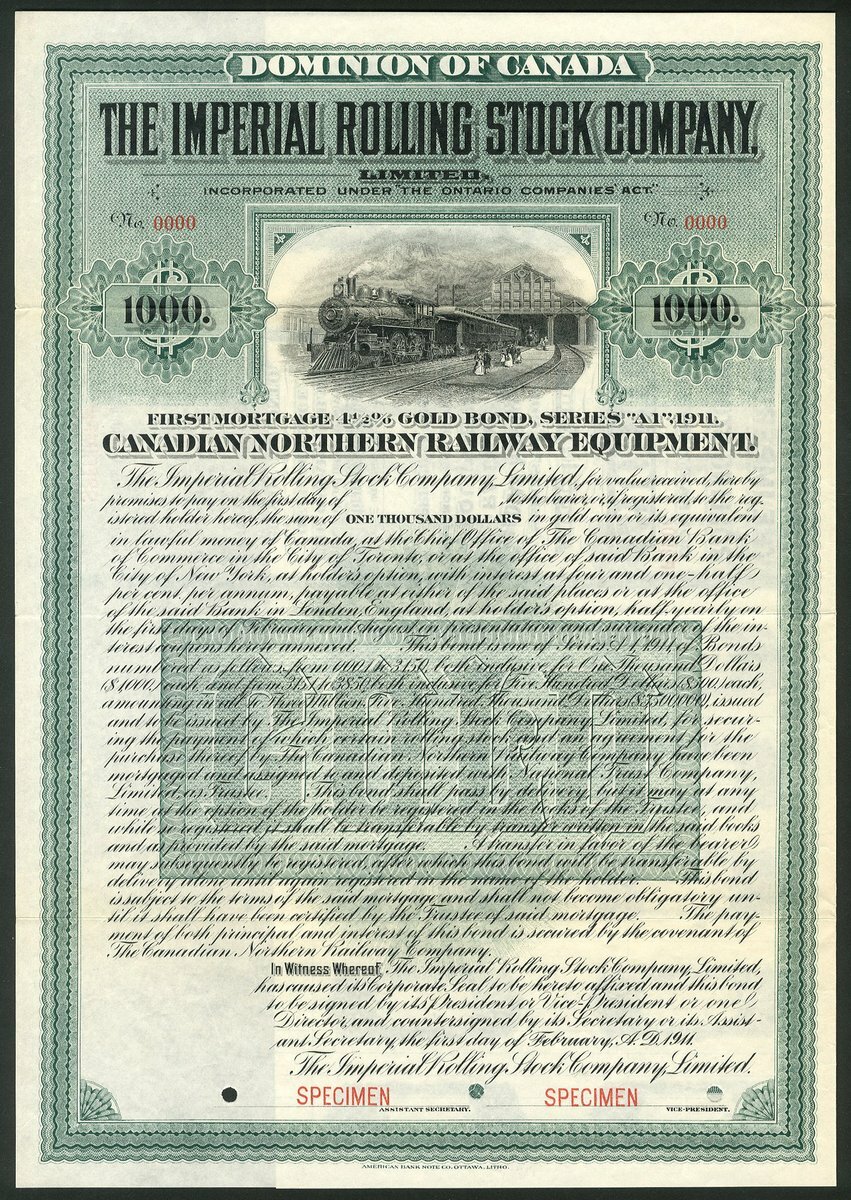 DOMINION OF CANADA
THE IMPERIAL ROLLING STOCK COMPANY,
LIMITED.,
INCORPORATED UNDER "THE ONTARIO COMPANIES ACT."
No. 0000 No. 0000
1000. 1000.
FIRST MORTGAGE 4½% GOLD BOND, SERIES "A1", 1911.
CANADIAN NORTHERN RAILWAY EQUIPMENT.
The Imperial Rolling Stock Company, Limited, for value received, hereby
promises to pay on the first day of , to the bearer, or, if registered, to the reg-
istered holder hereof, the sum of ONE THOUSAND DOLLARS in gold coin or its equivalent
in lawful money of Canada, at the Chief Office of The Canadian Bank
of Commerce in the City of Toronto, or at the office of said Bank in the
City of New York, at holder's option, with interest at four and one-half
per cent. per annum, payable at either of the said places or at the office
of the said Bank in London, England, at holder's option, half-yearly on
the first days of February and August on presentation and surrender of the in-
terest coupons hereto annexed. This bond is one of Series A1, 1911, of Bonds
numbered as follows, from 0001 to 3150, both inclusive, for One Thousand Dollars
($1,000) each, and from 3151 to 3850 both inclusive for Five Hundred Dollars ($500) each,
amounting in all to Three Million Five Hundred Thousand Dollars ($3,500,000), issued
and to be issued by The Imperial Rolling Stock Company, Limited, for secur-
ing the payment of which certain rolling stock and an agreement for the
purchase thereof by The Canadian Northern Railway Company have been
mortgaged and assigned to and deposited with National Trust Company,
Limited, as Trustee. This bond shall pass by delivery, but it may at any
time, at the option of the holder be registered in the books of the Trustee, and
while so registered it shall be transferable by transfer written in the said books
and as provided by the said mortgage. A transfer in favor of the bearer
may subsequently be registered, after which this bond will be transferable by
delivery alone until again registered in the name of the holder. This bond
is subject to the terms of the said mortgage and shall not become obligatory un-
til it shall have been certified by the Trustee of said mortgage. The pay-
ment of both principal and interest of this bond is secured by the covenant of
The Canadian Northern Railway Company.
In Witness Whereof, The Imperial Rolling Stock Company, Limited,
has caused its Corporate Seal to be hereto affixed and this bond
to be signed by its President or Vice-President or one
Director, and countersigned by its Secretary or its Assist-
ant Secretary, the first day of February, A.D. 1911.
The Imperial Rolling Stock Company, Limited.
SPECIMEN SPECIMEN
ASSISTANT SECRETARY. VICE-PRESIDENT.
AMERICAN BANK NOTE CO. OTTAWA, LITHO.
GOLD